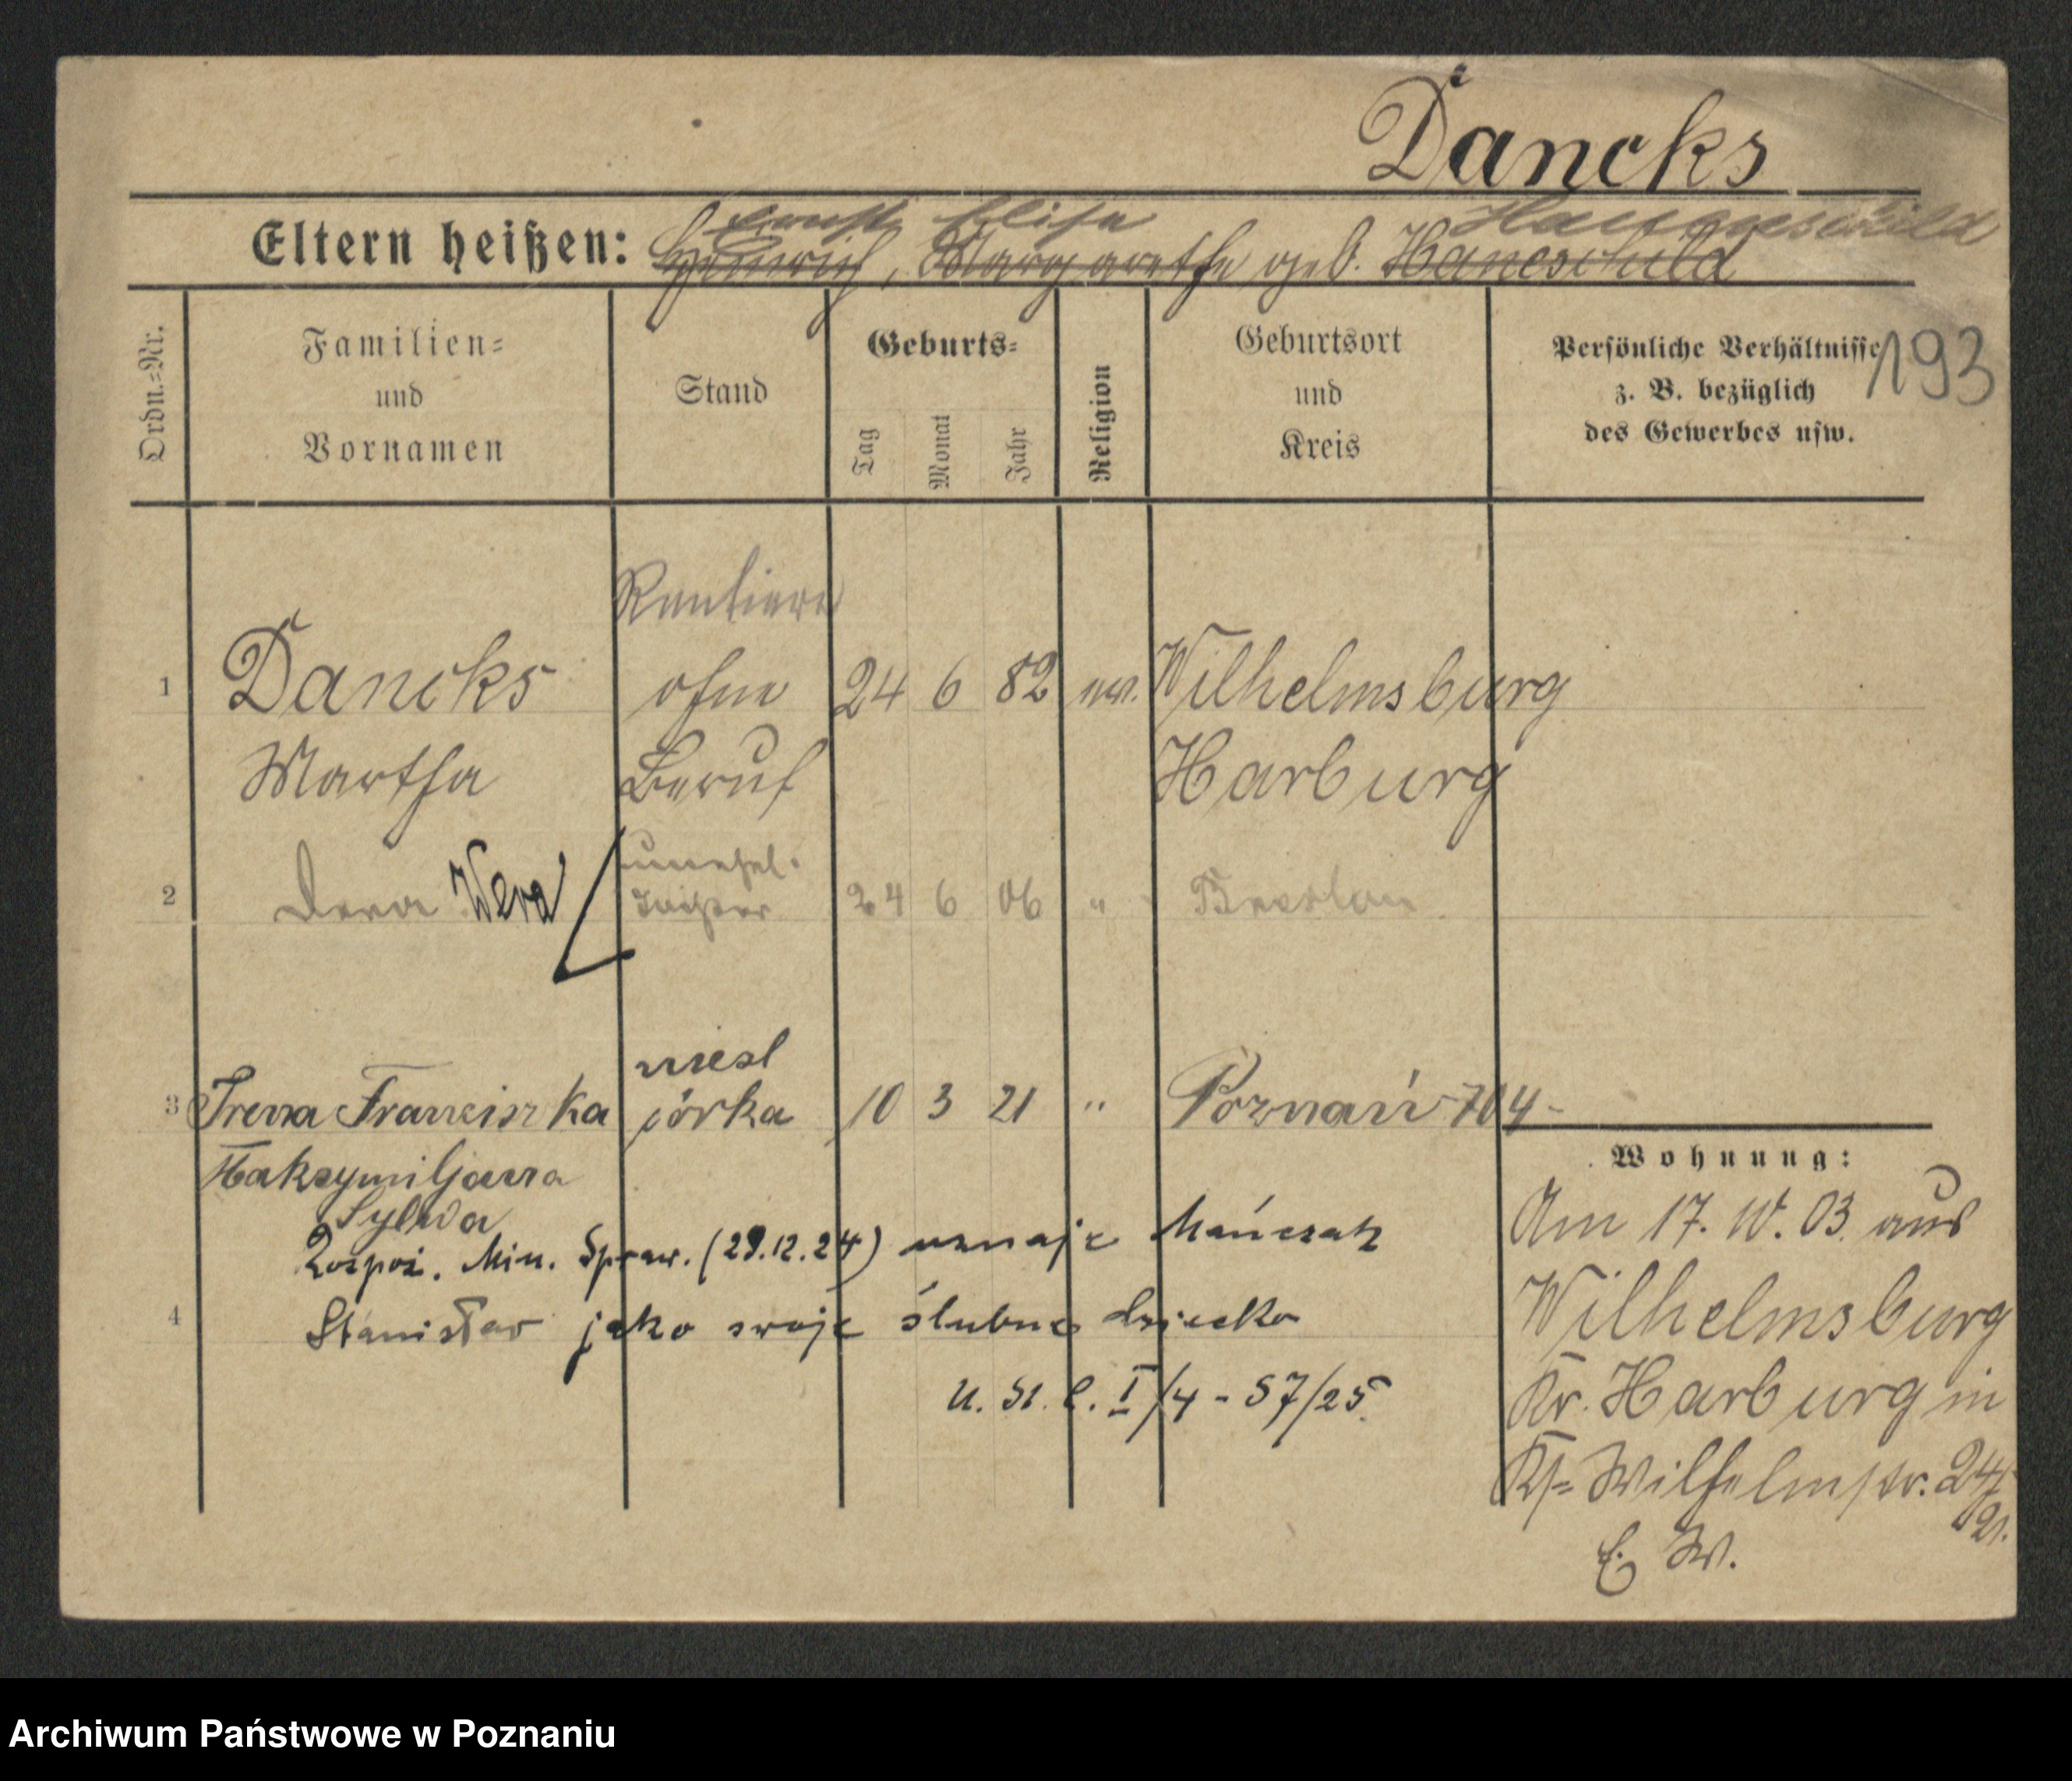 Dancks
Ernst Elisa Hannaeschild
Eltern heißen: Heinrich, Margarethe geb. Haneschild
Ordn.=Nr.
Familien=
und
Vornamen
Stand
Geburts=
Tag
Monat
Jahr
Religion
Geburtsort
und
Kreis
Persönliche Verhältnisse
z. B. bezüglich
des Gewerbes usw.
193
Rentiere
1 Dancks ohne 24 6 82 ev. Wilhelmsburg
Martha Beruf Harburg
unehel.
2 Vera Wera Tochter 24 6 06 " Breslau
niesl
3 Irena Franciszka córka 10 3 21 " Poznań 704
Maksymiljana
Sylwia
Rozpoż. Min. Spraw. (29.12.24) uznaje Mańczak
4 Stanisław jako swoje ślubne dziecko
U. St. C. I/4 - 57/25
Wohnung:
Am 17. 03. aus
Wilhelmsburg
Kr. Harburg in
Wilhelmstr. 24
E. W.
Archiwum Państwowe w Poznaniu